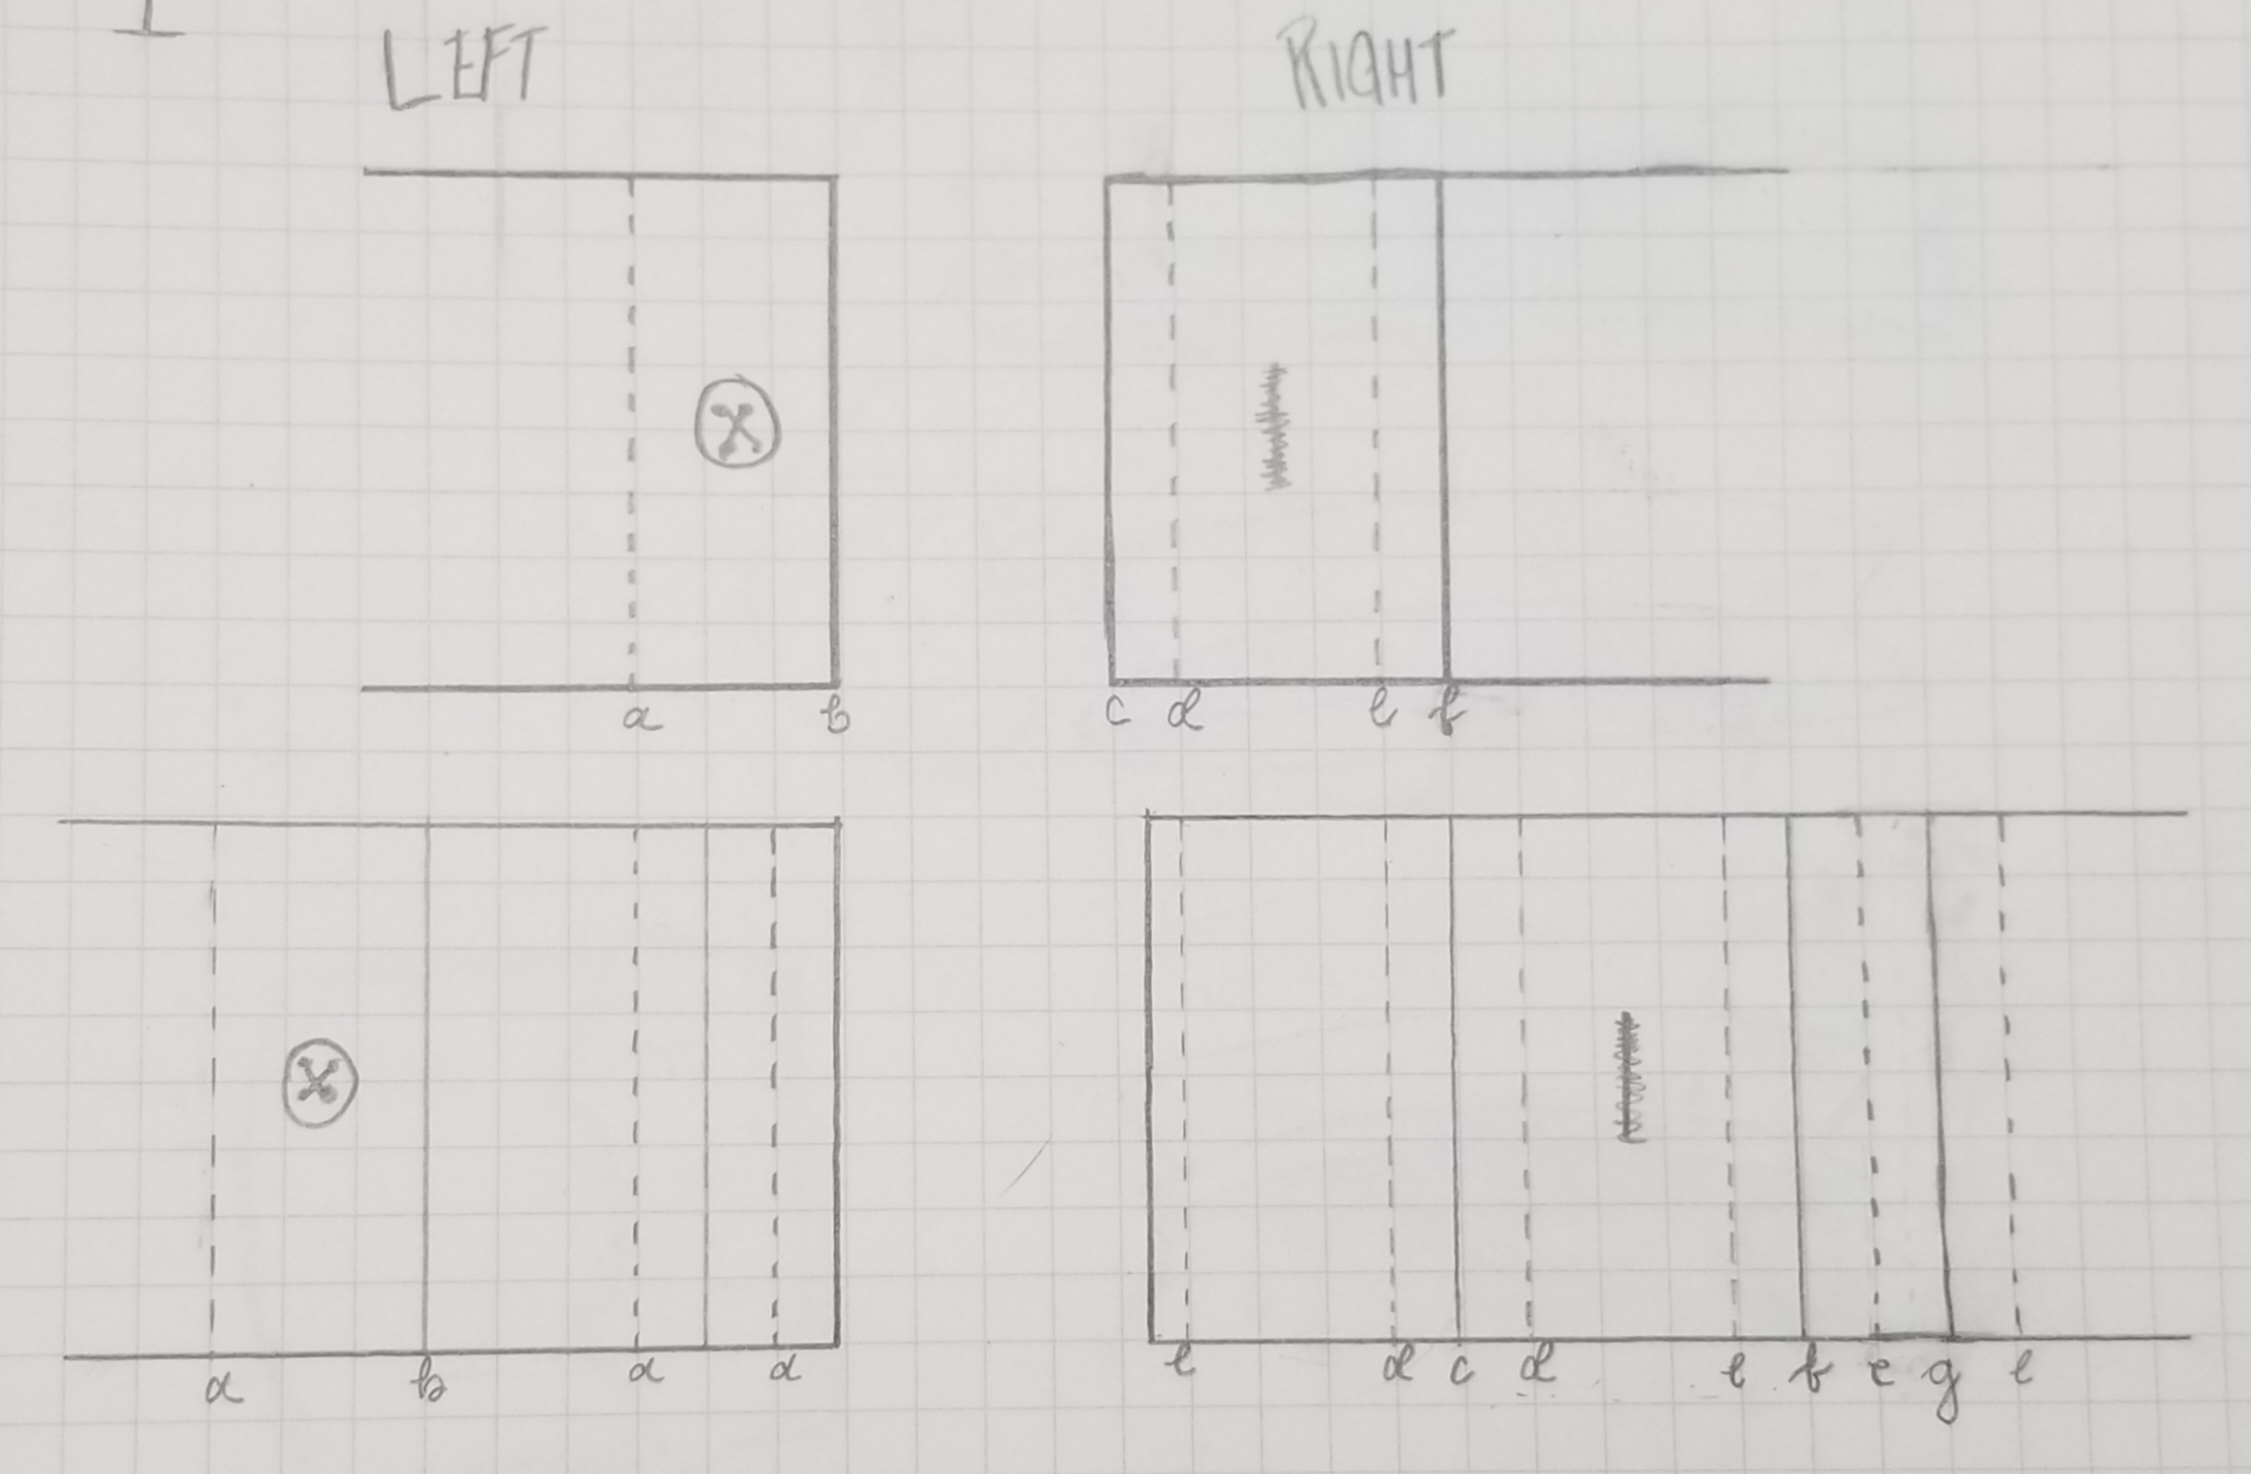 LEFT RIGHT
a b c d e f
a b a a e d c d e f e g e